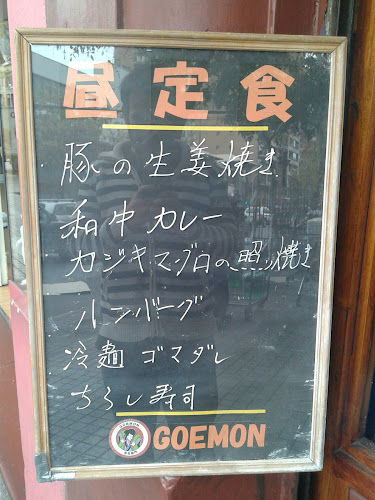 昼定食
豚の生姜焼き
和牛カレー
カジキマグロの照り焼き
ハンバーグ
冷麺 ゴマダレ
ちらし寿司
GOEMON